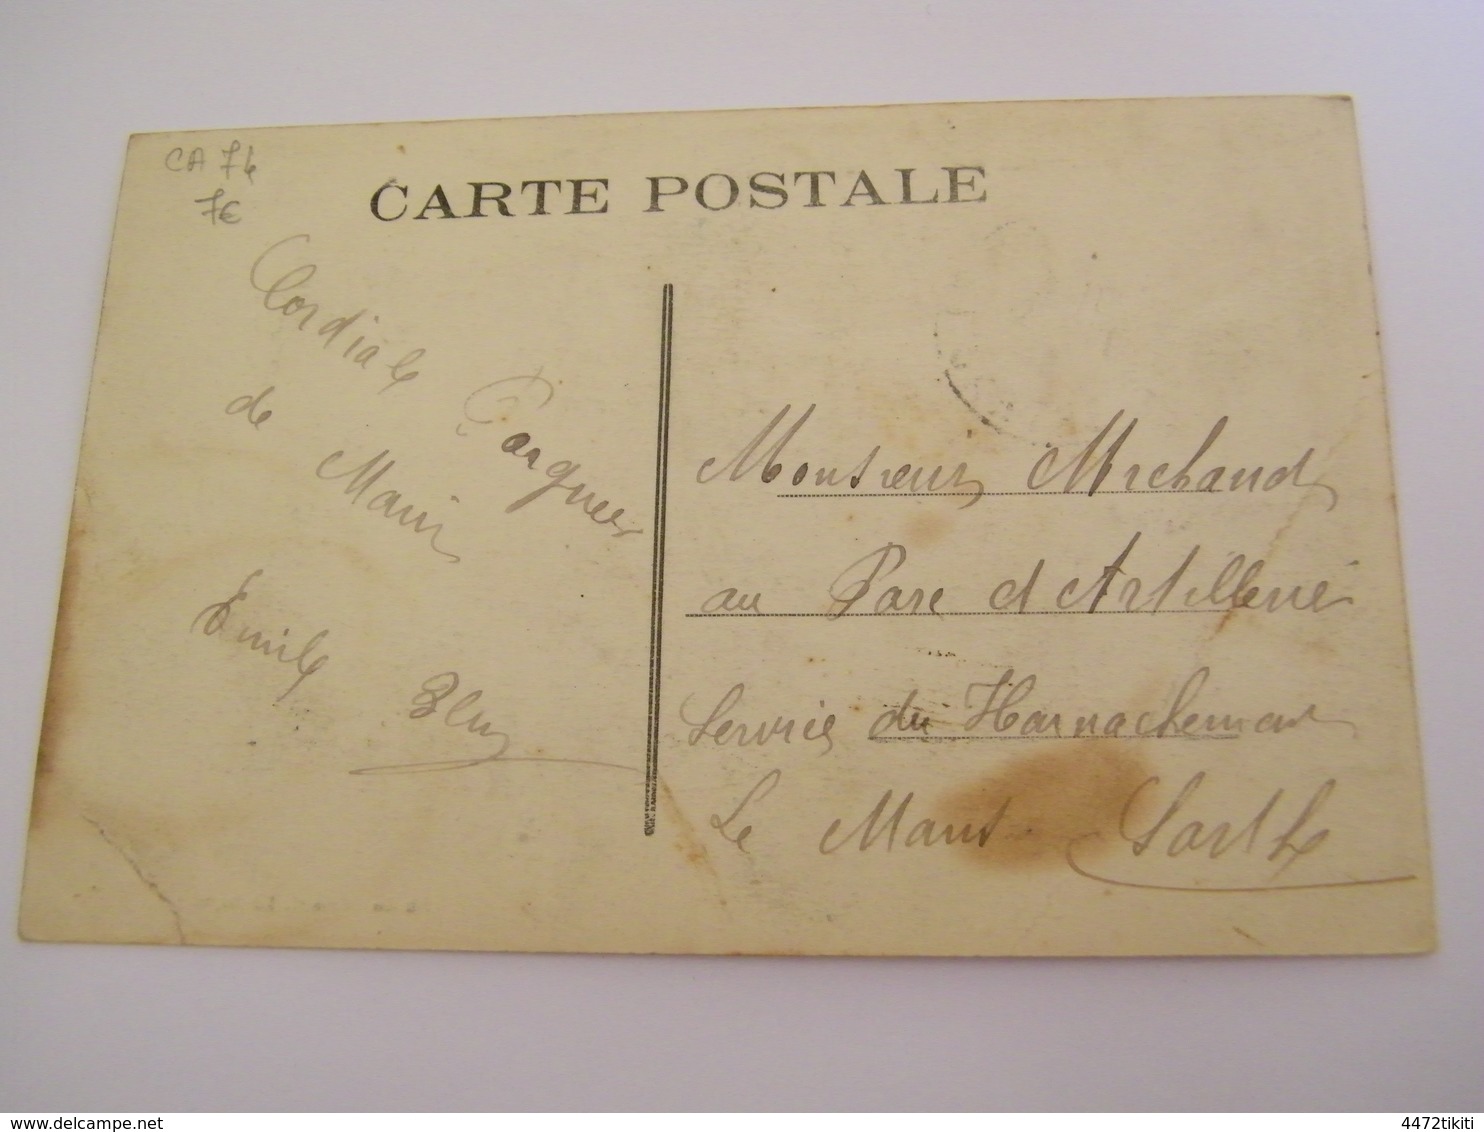 CA 74
7€
CARTE POSTALE
Cordiale Poignee
de Main
Emile
Monsieur Marchand
au Parc d Artillerie
Service du Harnachement
Le Mans Sarthe
delcampe.net
4472tikiti